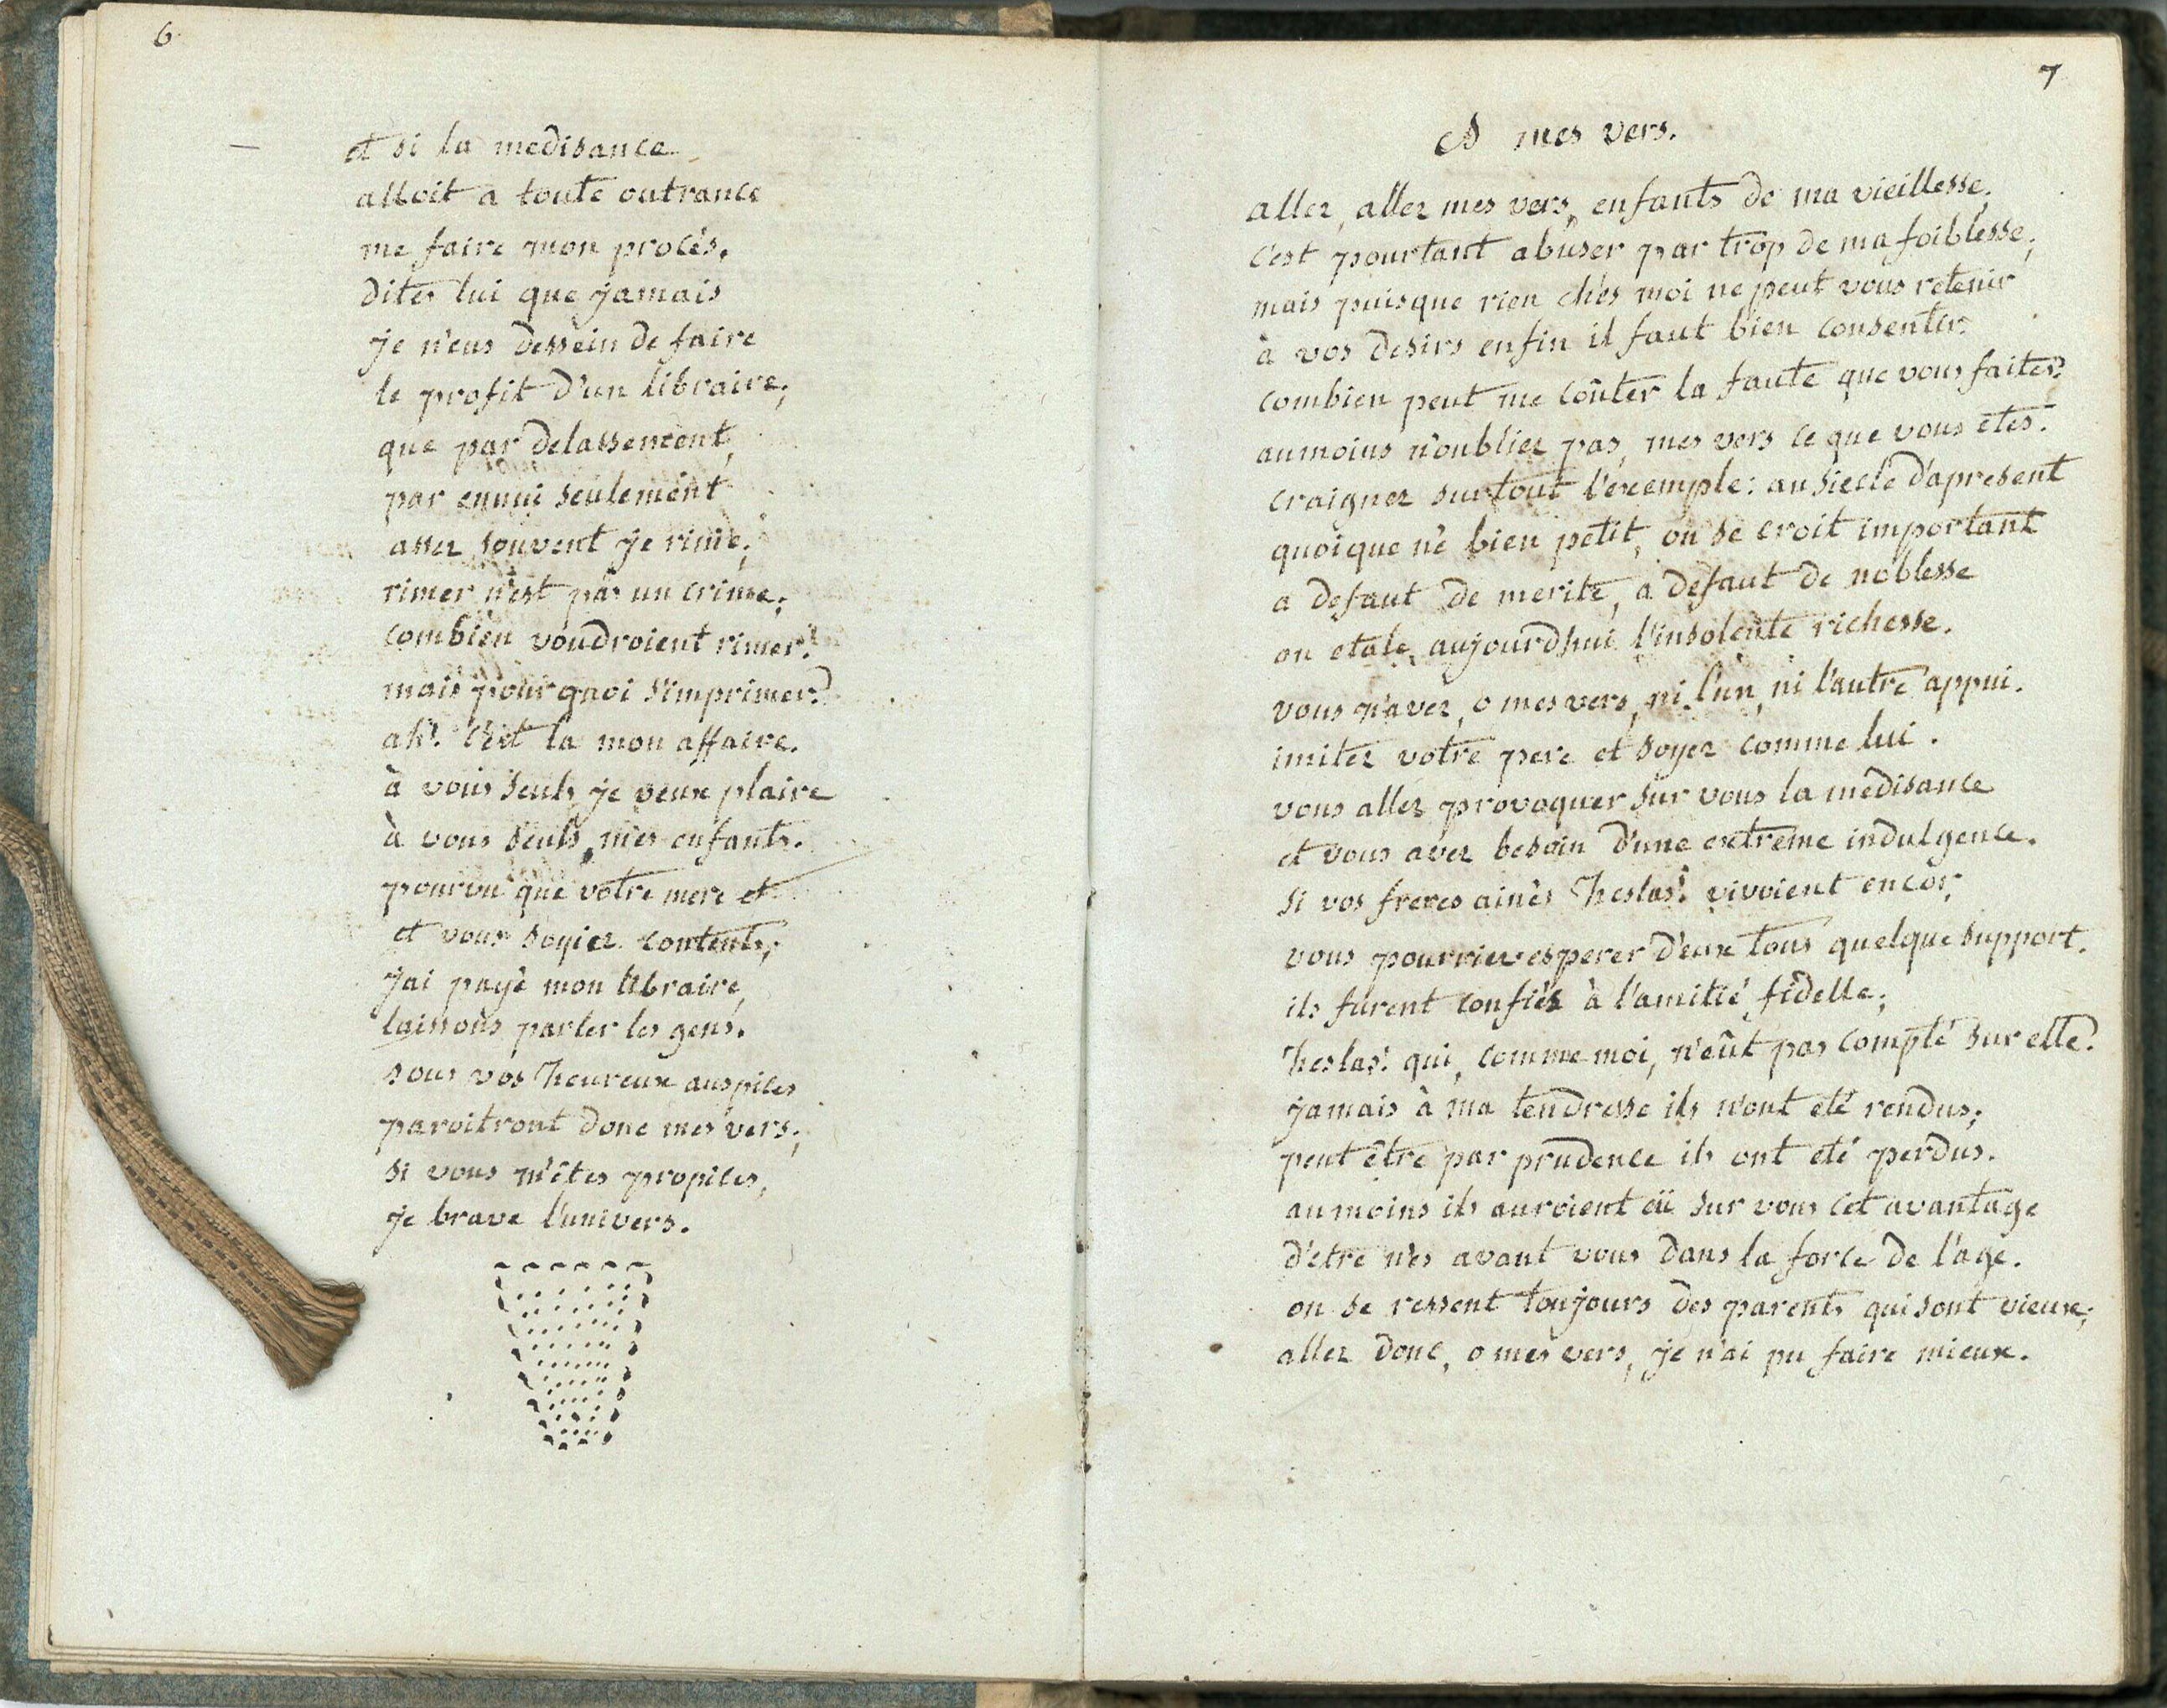 6
et si la medisance
alloit a toute outrance
me faire mon procès.
dites lui que jamais
je n'eus dessein de faire
le profit d'un libraire;
que par delassement,
par ennui seulement
assez souvent je rime;
rimer n'est pas un crime;
combien voudroient rimer!
mais pourquoi s'imprimer?
ah! c'est la mon affaire.
à vous seuls je veux plaire
à vous seuls, mes enfants.
pourvu que votre mere et
et vous soyiez contents;
j'ai payé mon libraire,
laissons parler les gens.
sous vos heureux auspices
paroitront donc mes vers;
si vous m'êtes propices,
je brave l'univers.
7
A mes vers.
allez, allez mes vers, enfants de ma vieillesse,
c'est pourtant abuser par trop de ma foiblesse;
mais puisque rien chés moi ne peut vous retenir
à vos desirs enfin il faut bien consentir.
combien peut me coûter la faute que vous faites?
au moins n'oubliez pas, mes vers ce que vous etes.
craignez surtout l'exemple: au siecle d'apresent
quoique né bien petit, on se croit important
a defaut de merite, a defaut de noblesse
on etale aujourdhui l'insolente richesse.
vous n'avez, o mes vers, ni l'un, ni l'autre appui.
imitez votre pere et soyez comme lui.
vous allez provoquer sur vous la medisance
et vous avez besoin d'une extreme indulgence.
si vos freres ainés heslas! vivoient encor,
vous pourriez esperer d'eux tous quelque support.
ils furent confiés à l'amitié fidelle;
heslas! qui, comme moi, n'eût pas compté sur elle?
jamais à ma tendresse ils n'ont eté rendus;
peut être par prudence ils ont eté perdus.
au moins ils auroient eü sur vous cet avantage
d'etre nés avant vous dans la force de l'age.
on se ressent toujours des parents qui sont vieux;
allez donc, o mes vers, je n'ai pu faire mieux.